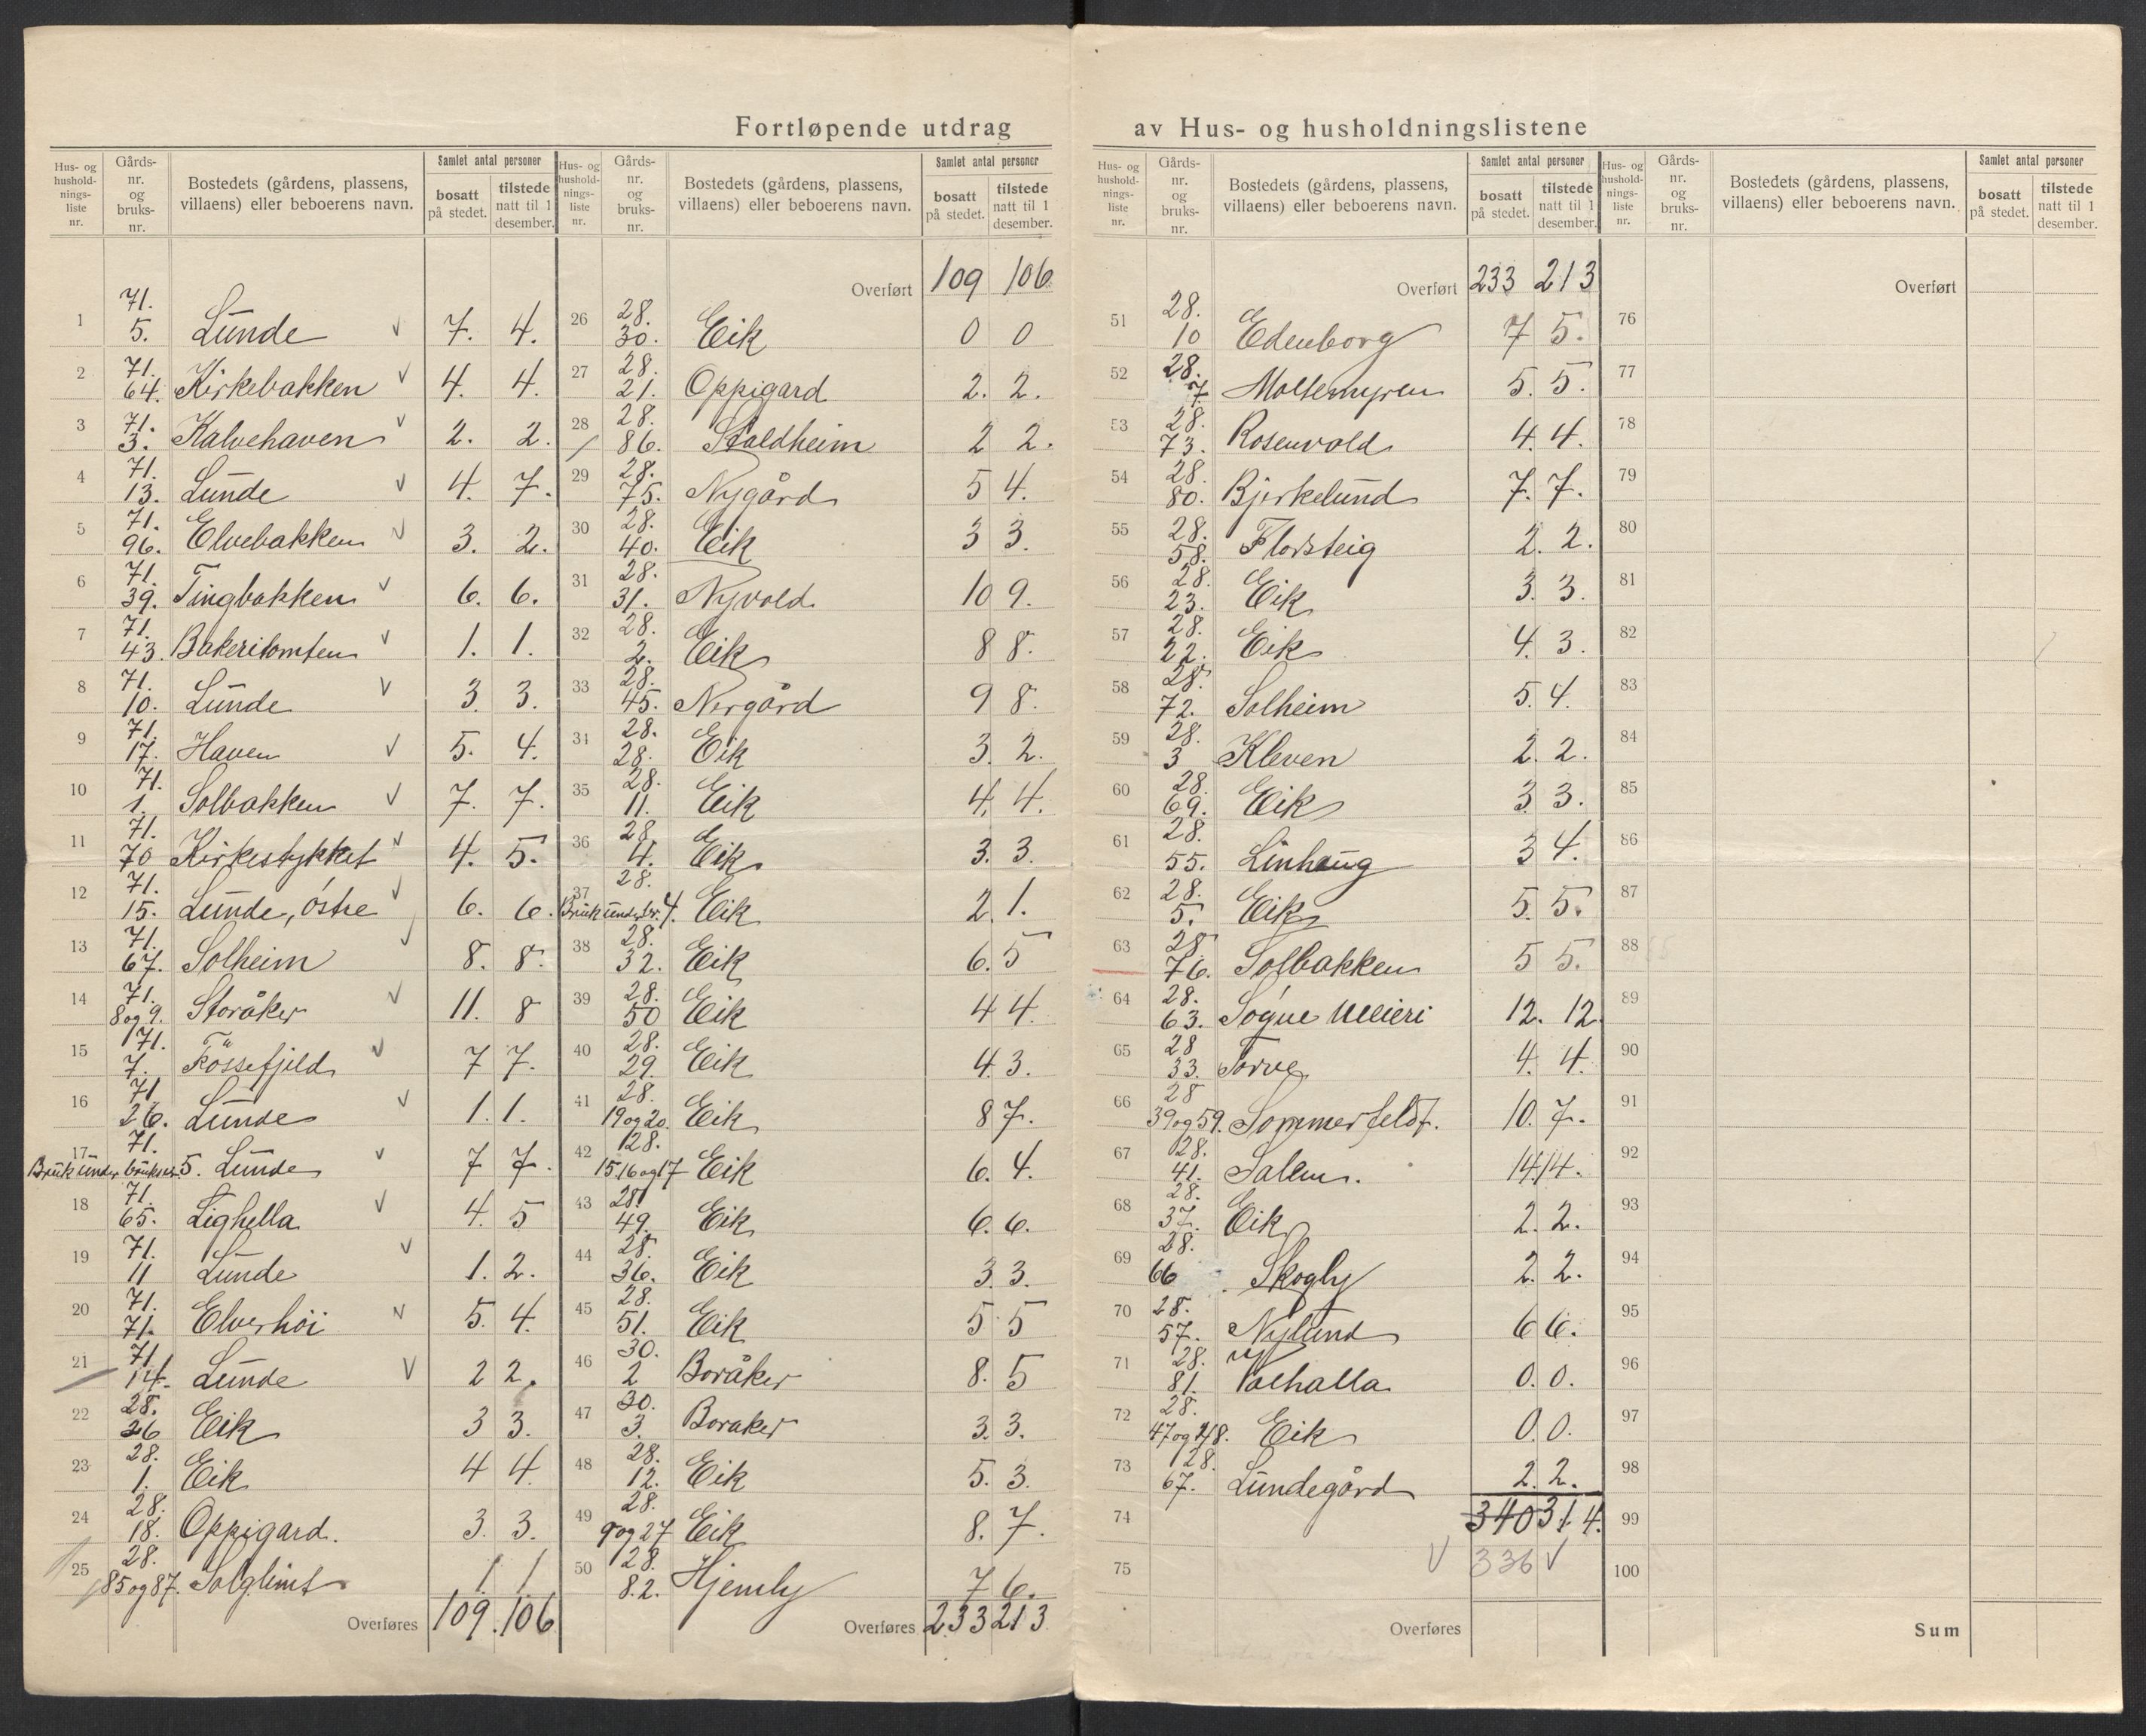 Fortløpende utdrag av Hus- og husholdningslistene
Hus- og
hushold-
nings-
liste
nr.
Gårds-
nr.
og
bruks-
nr.
Bostedets (gårdens, plassens,
villaens) eller beboerens navn.
Samlet antal personer
bosatt
på stedet.
tilstede
natt til 1
desember.
1 71. 5. Lunde v 7. 4.
2 71. 64. Kirkebakken v 4. 4.
3 71. 3. Kalvehaven v 2. 2.
4 71. 13. Lunde v 4. 7.
5 71. 96. Elvebakken v 3. 2.
6 71. 39. Tingbakken v 6. 6.
7 71. 43. Bakeritomten v 1. 1.
8 71. 10. Lunde v 3. 3.
9 71. 17. Haven v 5. 4.
10 71. 1. Solbakken v 7. 7.
11 71. 70 Kirkestykket v 4. 5.
12 71. 15. Lunde, østre v 6. 6.
13 71. 67. Solheim v 8. 8.
14 71. 8 og 9. Storåker v 11. 8
15 71. 7. Fössefjeld v 7 7.
16 71 26. Lunde v 1. 1.
17 71. Bruk under bruksnr. 5. Lunde v 7 7.
18 71. 65. Lighella v 4. 5
19 71. 11 Lunde v 1. 2.
20 71. 71. Elverhöi v 5. 4.
21 71 14. Lunde v 2 2.
22 28. 26 Eik 3 3.
23 28. 1. Eik 4 4.
24 28. 18. Oppigard. 3. 3.
25 28. 85 og 87. Solglimt 1 1
Overføres 109. 106
Hus- og
hushold-
nings-
liste
nr.
Gårds-
nr.
og
bruks-
nr.
Bostedets (gårdens, plassens,
villaens) eller beboerens navn.
Samlet antal personer
bosatt
på stedet.
tilstede
natt til 1
desember.
Overført 109 106
26 28. 30. Eik 0 0
27 28. 21. Oppigard 2. 2.
28 28. 86. Staldheim 2 2.
29 28. 75. Nygård 5 4.
30 28. 40. Eik 3 3.
31 28. 31. Nyvold 10 9.
32 28. 2. Eik 8 8.
33 28. 45. Nergård 9 8.
34 28. 28. Eik 3. 2.
35 28. 11. Eik 4. 4.
36 28 4. Eik 3. 3.
37 28. Bruk under br. 4. Eik 2. 1.
38 28. 32. Eik 6. 5
39 28. 50 Eik 4 4.
40 28. 29. Eik 4. 3.
41 28. 19 og 20. Eik 8 7.
42 28. 15 16 og 17 Eik 6. 4.
43 28. 49. Eik 6. 6.
44 28. 36. Eik 3. 3.
45 28. 51. Eik 5 5
46 30. 2 Boråker 8. 5
47 30. 3. Boraker 3. 3.
48 28. 12. Eik 5. 3.
49 28. 9 og 27 Eik 8. 7.
50 28. 82. Hjemly 7 6.
Overføres 233 213
Hus- og
hushold-
nings-
liste
nr.
Gårds-
nr.
og
bruks-
nr.
Bostedets (gårdens, plassens,
villaens) eller beboerens navn.
Samlet antal personer
bosatt
på stedet.
tilstede
natt til 1
desember.
Overført 233 213
51 28. 10 Edenborg 7 5.
52 28. 7. Moltemyren 5. 5.
53 28. 73. Rosenvold 4. 4.
54 28. 80. Bjerkelund 7. 7.
55 28. 58. Florsteig 2. 2.
56 28. 23. Eik 3. 3.
57 28. 22. Eik 4. 3.
58 28. 72. Solheim 5. 4.
59 28. 3 Kleven 2. 2.
60 28. 69. Eik 3 3.
61 28. 55. Linhaug 3 4.
62 28. 5. Eik 5. 5.
63 28 76. Solbakken 5 5.
64 28. 63. Søgne Meieri 12. 12
65 28 33. Torve 4. 4.
66 28 39 og 59. Sommerfeldt. 10. 7.
67 28. 41. Salem. 14. 14.
68 28. 37. Eik 2. 2.
69 28. 66 Skogly 2. 2.
70 28. 57. Nylund 6 6.
71 28. 81. Valhalla 0. 0.
72 28. 47 og 48. Eik 0. 0.
73 28. 67. Lundegård 2. 2.
74 340 314.
75 v 336 v
Overføres
Hus- og
hushold-
nings-
liste
nr.
Gårds-
nr.
og
bruks-
nr.
Bostedets (gårdens, plassens,
villaens) eller beboerens navn.
Samlet antal personer
bosatt
på stedet.
tilstede
natt til 1
desember.
Overført
76
77
78
79
80
81
82
83
84
85
86
87
88
89
90
91
92
93
94
95
96
97
98
99
100
Sum